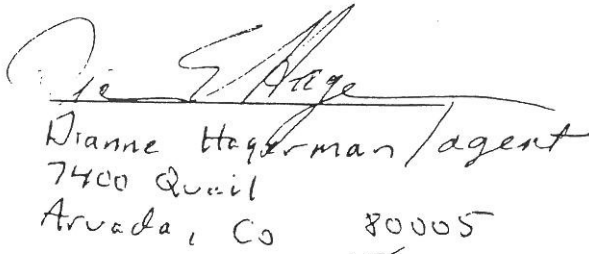 Dianne Hagerman / agent
7400 Quail
Arvada, Co 80005